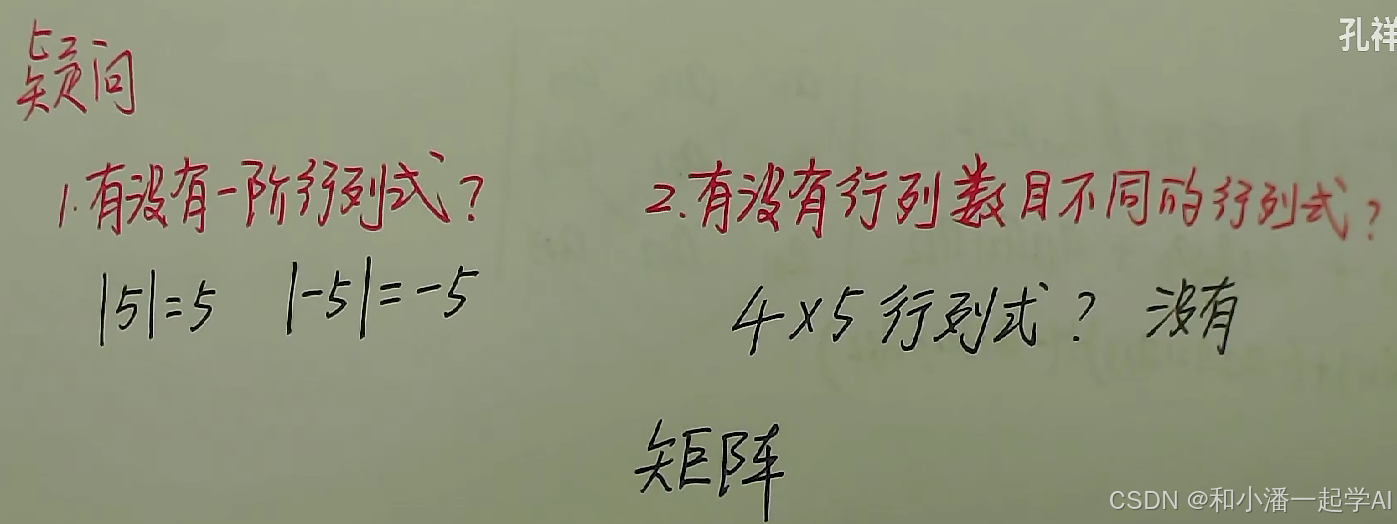 孔祥
疑问
1.有没有一阶行列式?
2.有没有行列数目不同的行列式?
|5|=5 |-5|=-5
4×5行列式? 没有
矩阵
CSDN @和小潘一起学AI